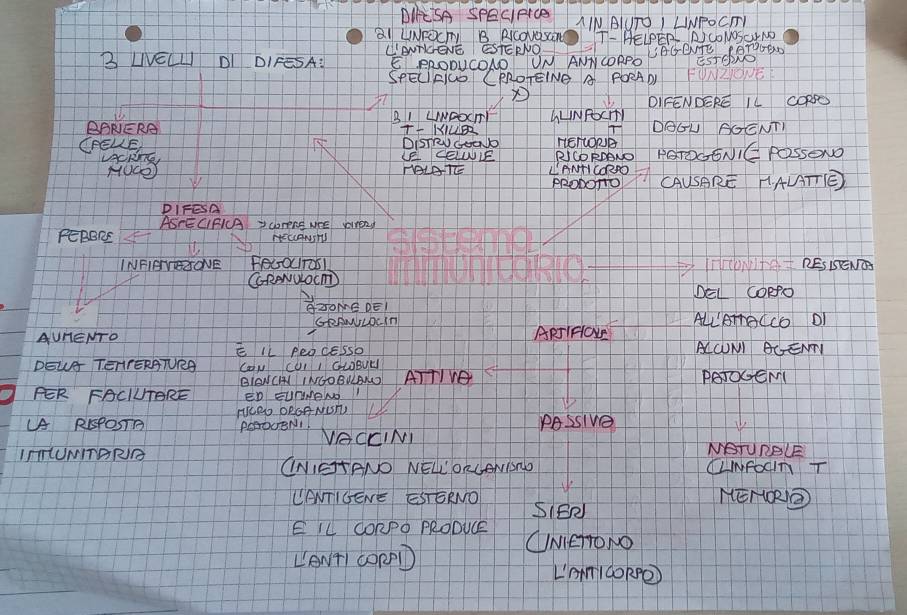 DIFESA SPECIFICA
1 IN AIUTO I LINFOCITI
2 I LINFOCITI B RICONOSCONO
T-HELPER RICONOSCONO
L'ANTIGENE ESTERNO
L'AGENTE PATOGENO
ESTERNO
E PRODUCONO UN ANTICORPO
SPECIFICO (PROTEINA A FORMA DI
Y)
3 LIVELLI DI DIFESA:
FUNZIONE:
DIFENDERE IL CORPO
DAGLI AGENTI
PATOGENI (E POSSONO
CAUSARE MALATTIE)
3 I LINFOCITI
T-KILLER
DISTRUGGONO
LE CELLULE
MALATE
4 LINFOCITI
T
MEMORIA
RICORDANO
L'ANTICORPO
PRODOTTO
BARIERA
(PELLE,
LACRIME,
MUCO)
DIFESA
ASPECIFICA
COMPRENDE DIVERSI
MECCANISMI
FEBBRE
INFIAMMAZIONE
FAGOCITOSI
(GRANULOCITI)
AZIONE DEI
GRANULOCITI
È IL PROCESSO
CON CUI I GLOBULI
BIANCHI INGOBLANO
ED ELIMINANO I
MICRO ORGANISMI
PATOGENI.
AUMENTO
DELLA TEMPERATURA
PER FACILITARE
LA RISPOSTA
IMMUNITARIA
sistema
immunitario
IMMUNITÀ = RESISTENZA
DEL CORPO
ALL'ATTACCO DI
ALCUNI AGENTI
PATOGENI
ARTIFICIALE
ATTIVA
PASSIVA
VACCINI
(INIETTANO NELL'ORGANISMO
L'ANTIGENE ESTERNO
E IL CORPO PRODUCE
L'ANTI CORPI)
SIERI
(INIETTONO
L'ANTICORPO)
NATURALE
(LINFOCITI T
MEMORIA)